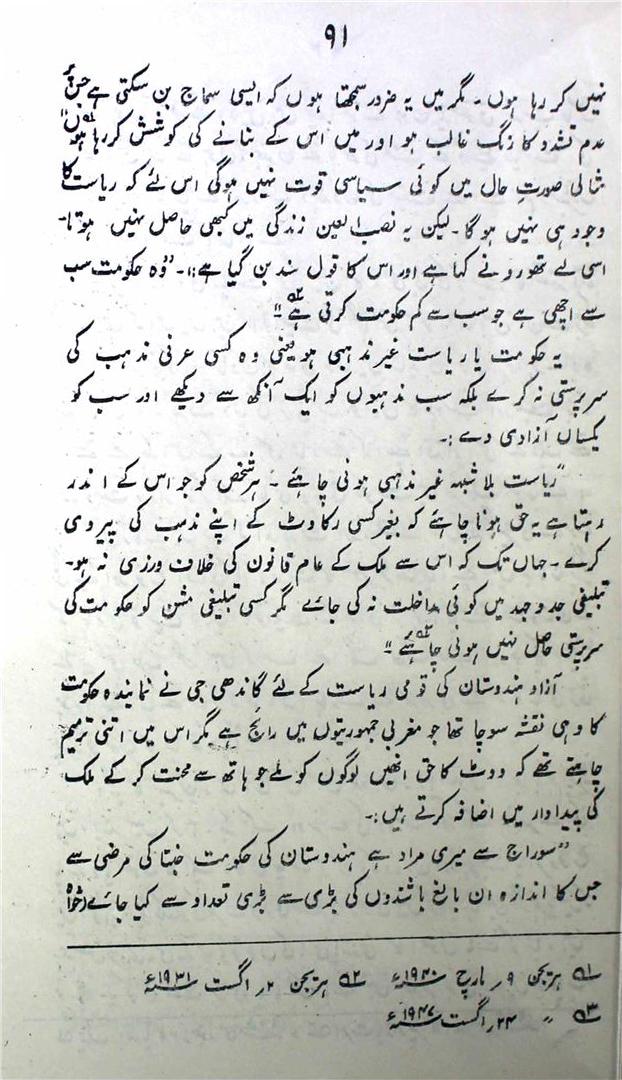 ۹۱
نہیں کر رہا ہوں۔ مگر میں یہ ضرور سمجھتا ہوں کہ ایسی سماج بن سکتی ہے جس پر
عدم تشدد کا رنگ غالب ہو اور میں اس کے بنانے کی کوشش کر رہا ہوں۱؎"
مثالی صورتِ حال میں کوئی سیاسی قوت نہیں ہوگی اس لئے کہ ریاست کا
وجود ہی نہیں ہوگا۔ لیکن یہ نصب العین زندگی میں کبھی حاصل نہیں ہوتا۔
اسی لے تھورو نے کہا ہے اور اس کا قول سند بن گیا ہے:۔ "وہ حکومت سب
سے اچھی ہے جو سب سے کم حکومت کرتی ہے۲؎"
یہ حکومت یا ریاست غیر مذہبی ہو یعنی وہ کسی عرفی مذہب کی
سرپرستی نہ کرے بلکہ سب مذہبوں کو ایک آنکھ سے دیکھے اور سب کو
یکساں آزادی دے:۔
"ریاست بلا شبہہ غیر مذہبی ہونی چاہئے۔ ہر شخص کو جو اس کے اندر
رہتا ہے یہ حق ہونا چاہئے کہ بغیر کسی رکاوٹ کے اپنے مذہب کی پیروی
کرے۔ جہاں تک کہ اس سے ملک کے عام قانون کی خلاف ورزی نہ ہو۔
تبلیغی جدوجہد میں کوئی مداخلت نہ کی جائے مگر کسی تبلیغی مشن کو حکومت کی
سرپرستی حاصل نہیں ہونی چاہئے۳؎"
آزاد ہندوستان کی قومی ریاست کے لئے گاندھی جی نے نمایندہ حکومت
کا وہی نقشہ سوچا تھا جو مغربی جمہوریتوں میں رائج ہے مگر اس میں اتنی ترمیم
چاہتے تھے کہ ووٹ کا حق انھیں لوگوں کو ملے جو ہاتھ سے محنت کر کے ملک
کی پیداوار میں اضافہ کرتے ہیں:۔
"سوراج سے میری مراد ہے ہندوستان کی حکومت جنتا کی مرضی سے
جس کا اندازہ ان بالغ باشندوں کی بڑی سے بڑی تعداد سے کیا جائے (خواہ
۱؎ ہریجن ۹ر مارچ ۱۹۴۰ء ۲؎ ہریجن ۲ر اگست ۱۹۳۱ء
۳؎ " ۲۴ر اگست ۱۹۴۷ء